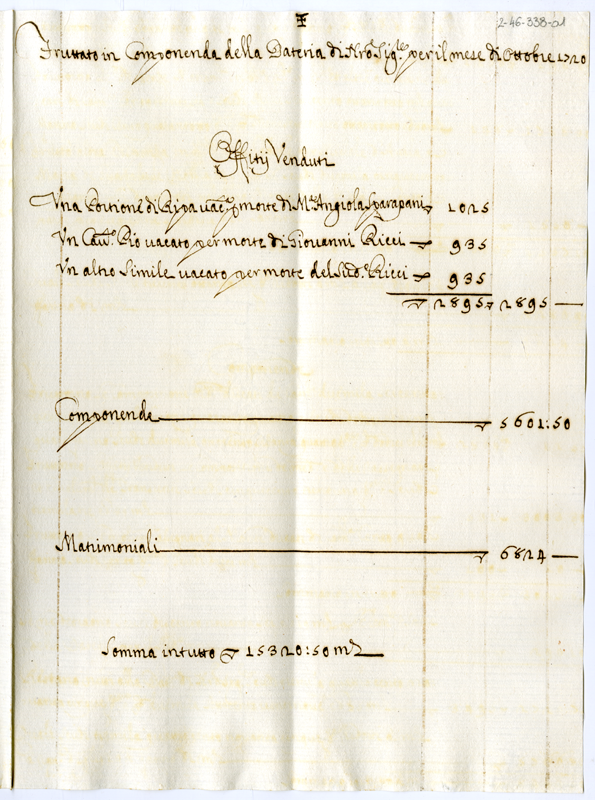 2-46-338-01
Fruttato in Componenda della Dateria di Nro Sig.re per il mese di Ottobre 1720
Offitij Venduti
Una Portione di Ripa vac.ta p morte di M.a Angiola Sparapani 1025
Un Cav.e Pio vacato per morte di Giovanni Ricci 935
Un altro Simile vacato per morte del Sud.o Ricci 935
2895 2895 —
Componenda 5601:50
Matrimoniali 6824 —
Somma in tutto 15320:50 m.ta